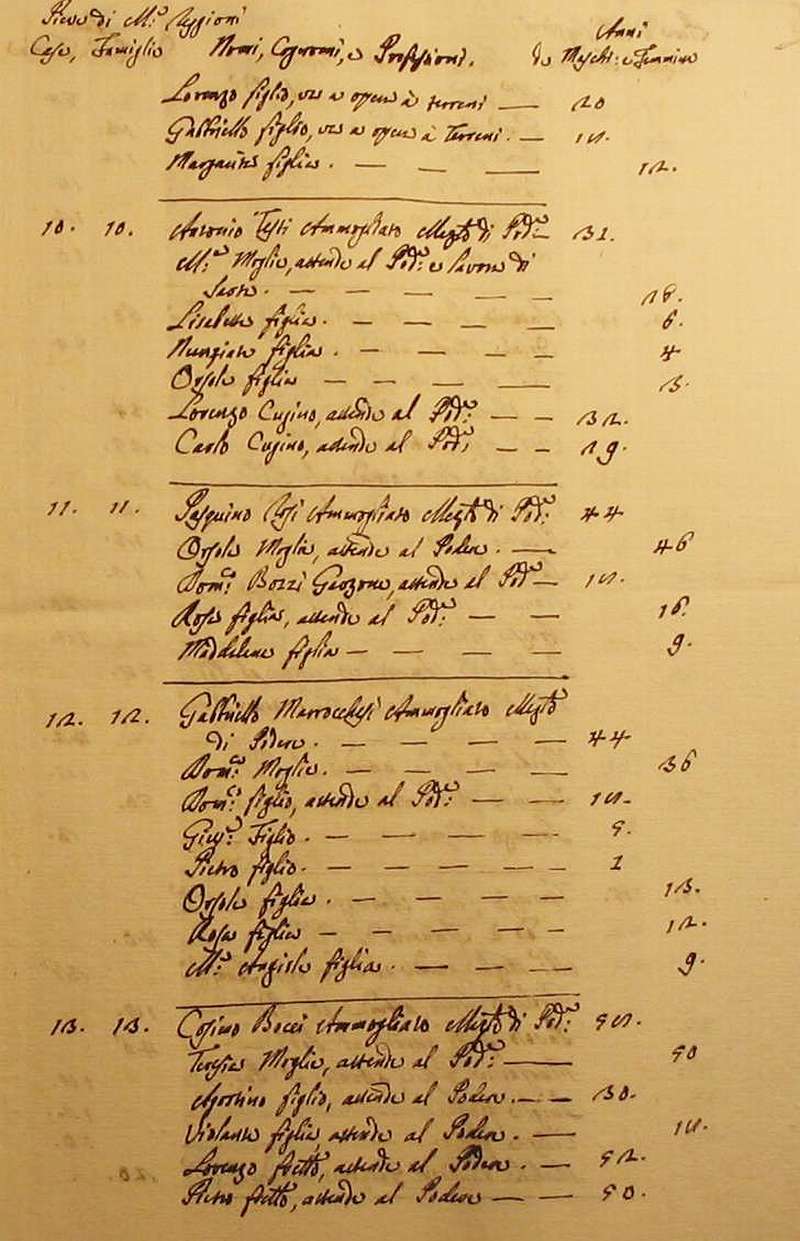 Pieve di M.ª
Case, Famiglie Nomi, Cognomi, e Professioni. Anni
de Maschi: e Femmine
Lorenzo figlio, va a opera à terreni — 20
Gabriello figlio, va a opera à Terreni. —
Margarita figlia. — — — 12.
10. 10. Antonio Testi Ammogliato Mezº di Podᵉ — 31.
M.ª Moglie, attende al Podᵉ e lavora di
— — — — — 18.
Lisabetta figlia. — — — — 6.
Nunziata figlia. — — — — 4
Orsola figlia — — — — 3.
Lorenzo Cugino, attende al Podᵉ — — 32.
Carlo Cugino, attende al Podᵉ — — 19.
11. 11. Pasquino Ammogliato Mezº di Podᵉ 44
Orsola Moglie, attende al Podere. — 46
Domᶜº Bozzi Garzone, attende al Podᵉ —
Rosa figlia, attende al Podᵉ — — 16.
Maddalena figlia — — — — 9.
12. 12. Gabriello Marrocchesi Ammogliato Mezº
di Podere. — — — — 44
Domᶜª Moglie. — — — — 36
Domᶜº figlio, attende al Podᵉ — —
Giusᵉ Figlio. — — — — 5.
Pietro figlio. — — — — — 2
Orsola figlia. — — — — — 13.
Rosa figlia — — — — — 12.
M.ª Angiola figlia. — — — — 9.
13. 13. Cosimo Bocci Ammogliato Mezº di Podᵉ
Teresa Moglie, attende al Podᵉ — 50
Agostino figlio, attende al Podere. — — 30.
Violante figlia, attende al Podere. —
Lorenzo frēllo, attende al Podere. — 52.
Pietro frēllo, attende al Podere — — 50.